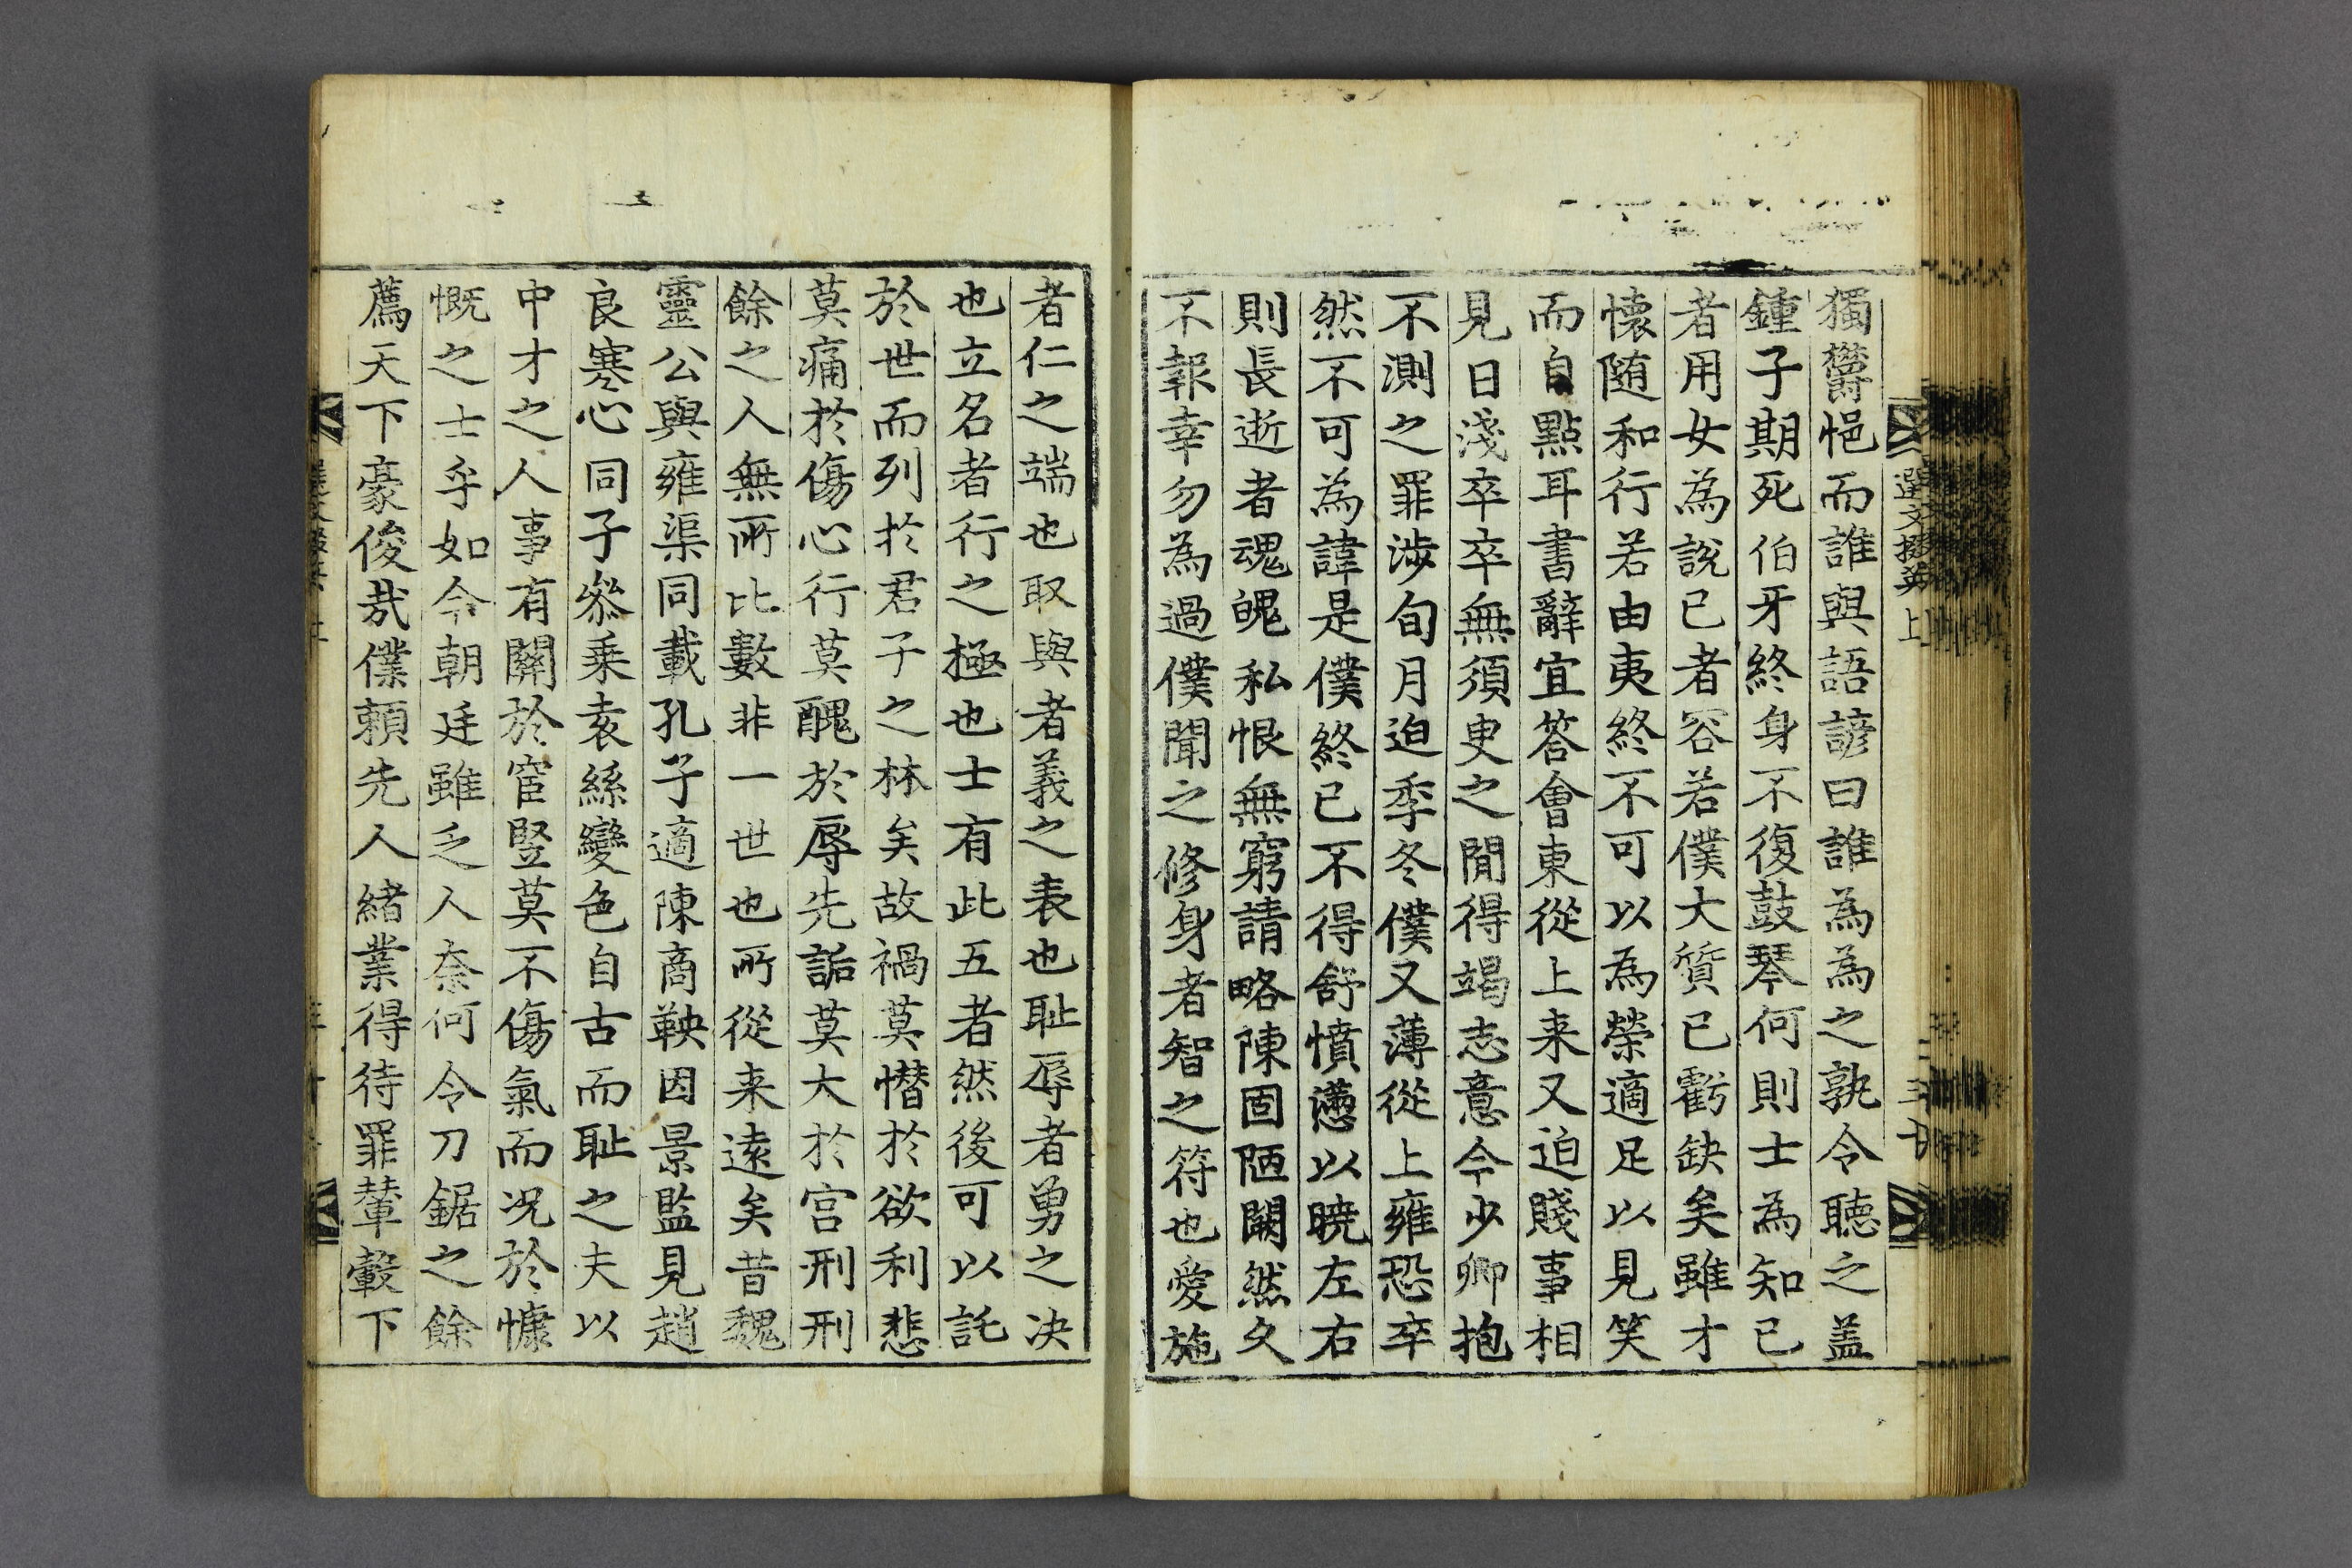 獨欝悒而誰與語諺曰誰為為之孰令聽之盖
鍾子期死伯牙終身不復鼓琴何則士為知己
者用女為說己者容若僕大質已虧缺矣雖才
懷随和行若由夷終不可以為榮適足以見笑
而自點耳書辭宜答會東從上来又迫賤事相
見日淺卒卒無須臾之閒得竭志意今少卿抱
不測之罪涉旬月迫季冬僕又薄從上雍恐卒
然不可為諱是僕終已不得舒憤懣以曉左右
則長逝者魂魄私恨無窮請略陳固陋闕然久
不報幸勿為過僕聞之修身者智之符也愛施
選文掇英上
三十
者仁之端也取與者義之表也耻辱者勇之决
也立名者行之極也士有此五者然後可以託
於世而列於君子之林矣故禍莫憯於欲利悲
莫痛於傷心行莫醜於辱先詬莫大於宮刑刑
餘之人無所比數非一世也所從来遠矣昔魏
靈公與雍渠同載孔子適陳商鞅因景監見趙
良寒心同子叅乗袁絲變色自古而耻之夫以
中才之人事有關於宦竪莫不傷氣而况於慷
慨之士乎如今朝廷雖乏人奈何令刀鋸之餘
薦天下豪俊㢤僕頼先人緒業得待罪輦轂下